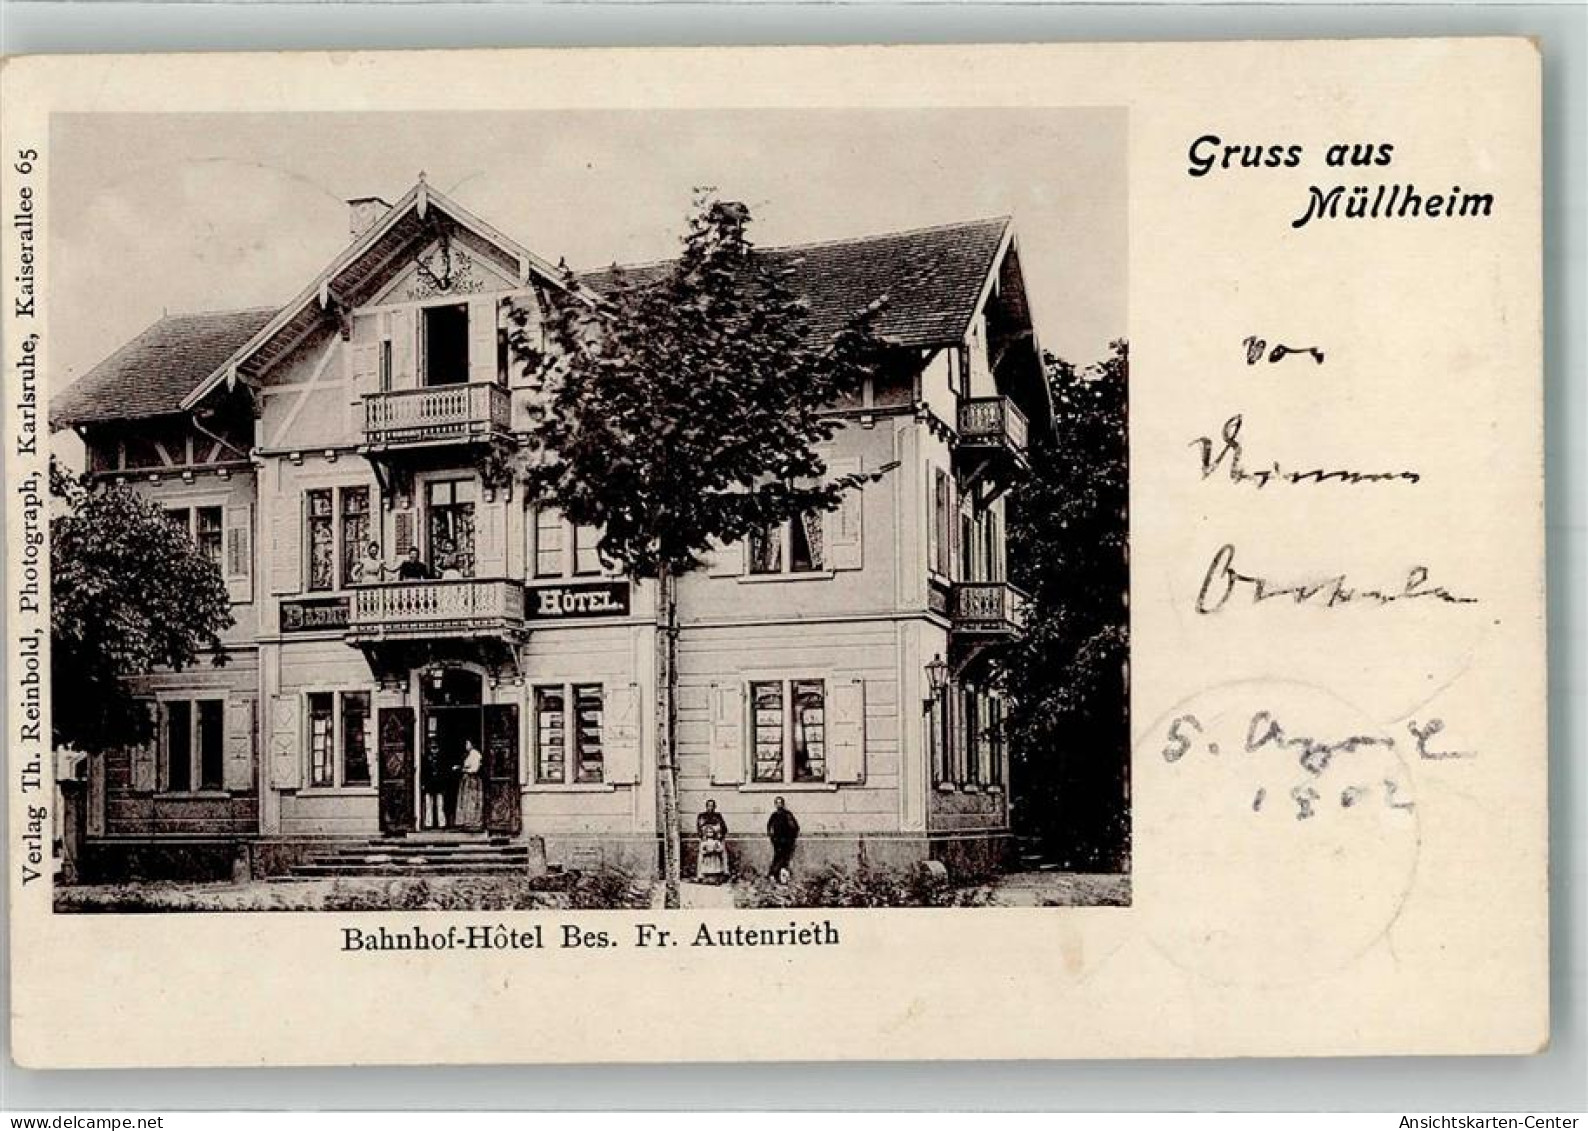 Gruss aus
Müllheim
von
5. April
1902
HÔTEL.
Bahnhof-Hôtel Bes. Fr. Autenrieth
Verlag Th. Reinbold, Photograph, Karlsruhe, Kaiserallee 65
delcampe.net
milou123
Ansichtskarten-Center